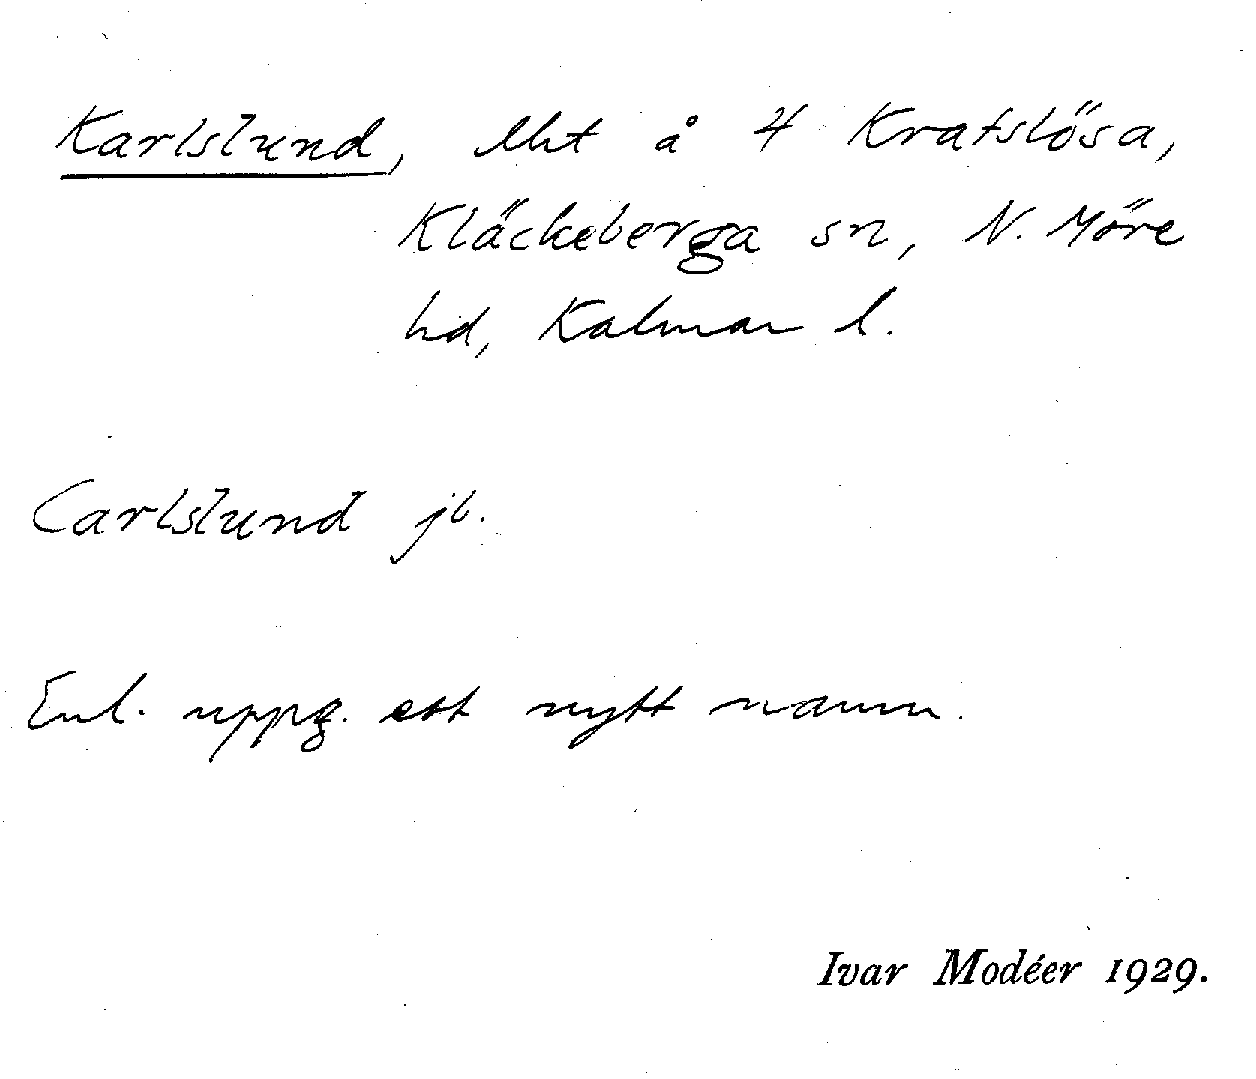 Karlslund, lht å 4 Kratslösa,
Kläckeberga sn, N. Möre
hd, Kalmar l.
Carlslund jb.
Enl. uppg. ett nytt namn.
Ivar Modéer 1929.